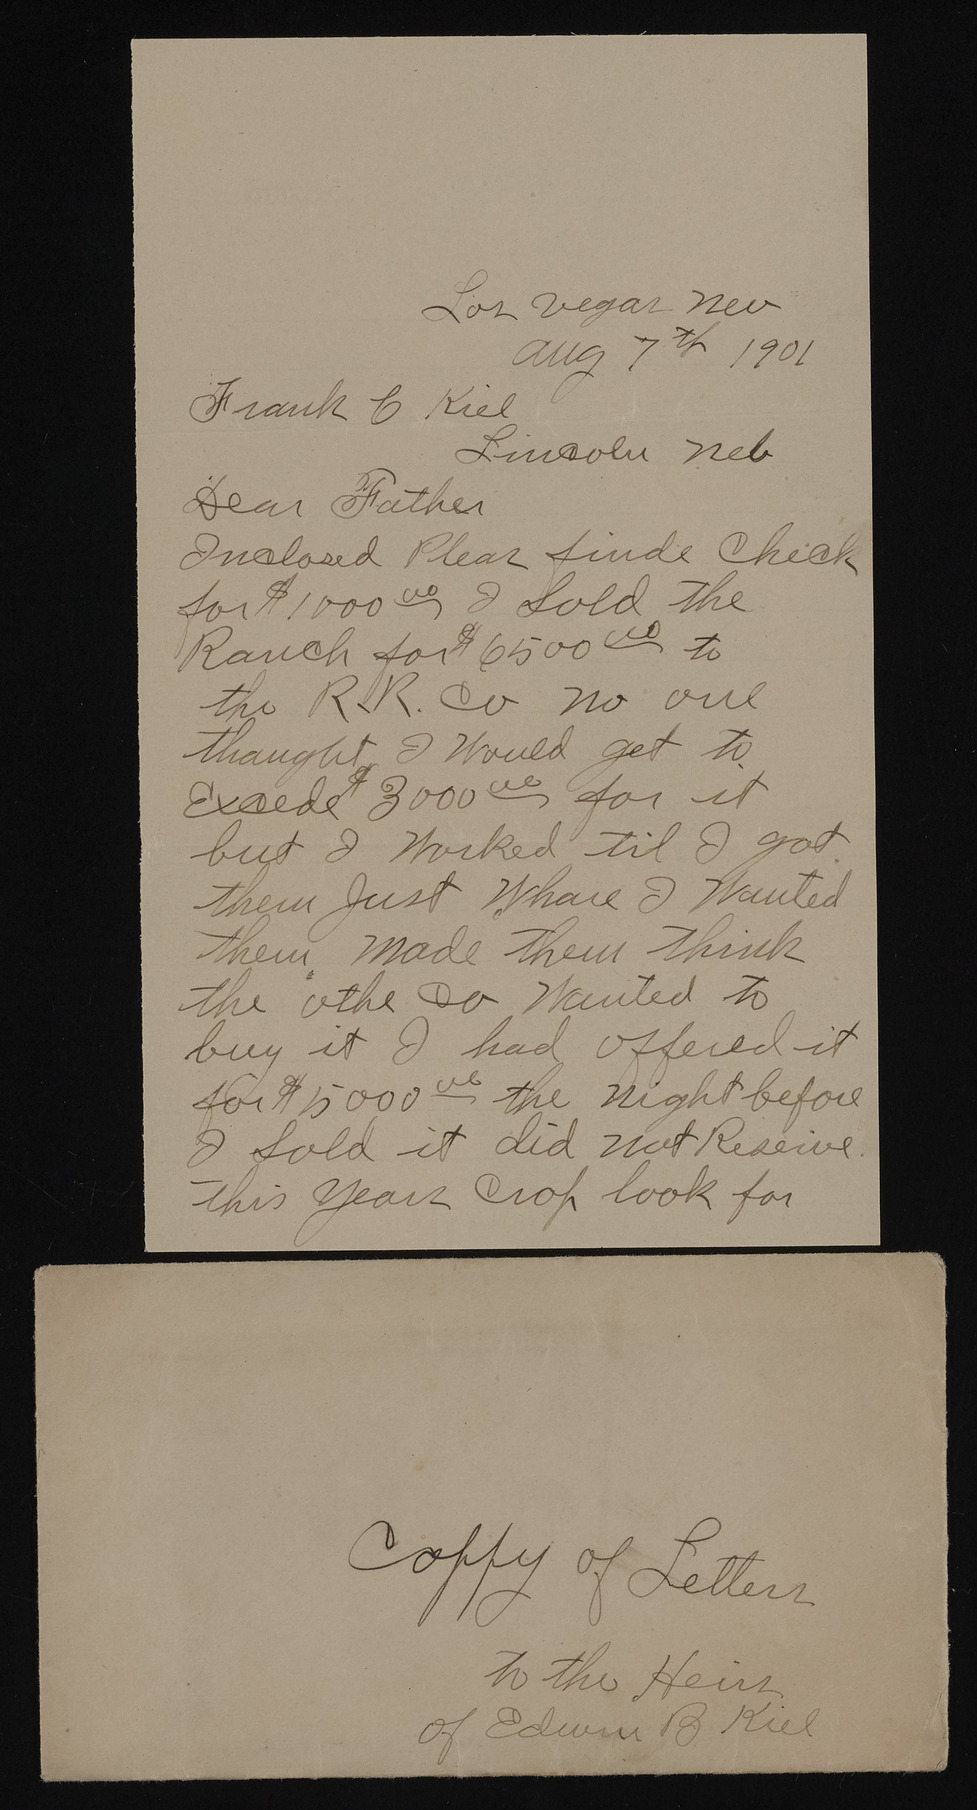 Los Vegas Nev
Aug 7th 1901
Frank C Kiel
Lincoln Neb
Dear Father
Inclosed Pleas finde Check
for $1000 00 I Sold the
Ranch for $6500 00 to
the R.R. Co no one
thaught I Would get to
Excede $3000 00 for it
but I Worked til I got
them Just Whare I Wanted
them made them think
the othe Co Wanted to
buy it I had offered it
for $5000 00 the night before
I Sold it did not Reseive
this Years Crop look for
Coppy of Letters
to the Heirs
of Edwin B Kiel